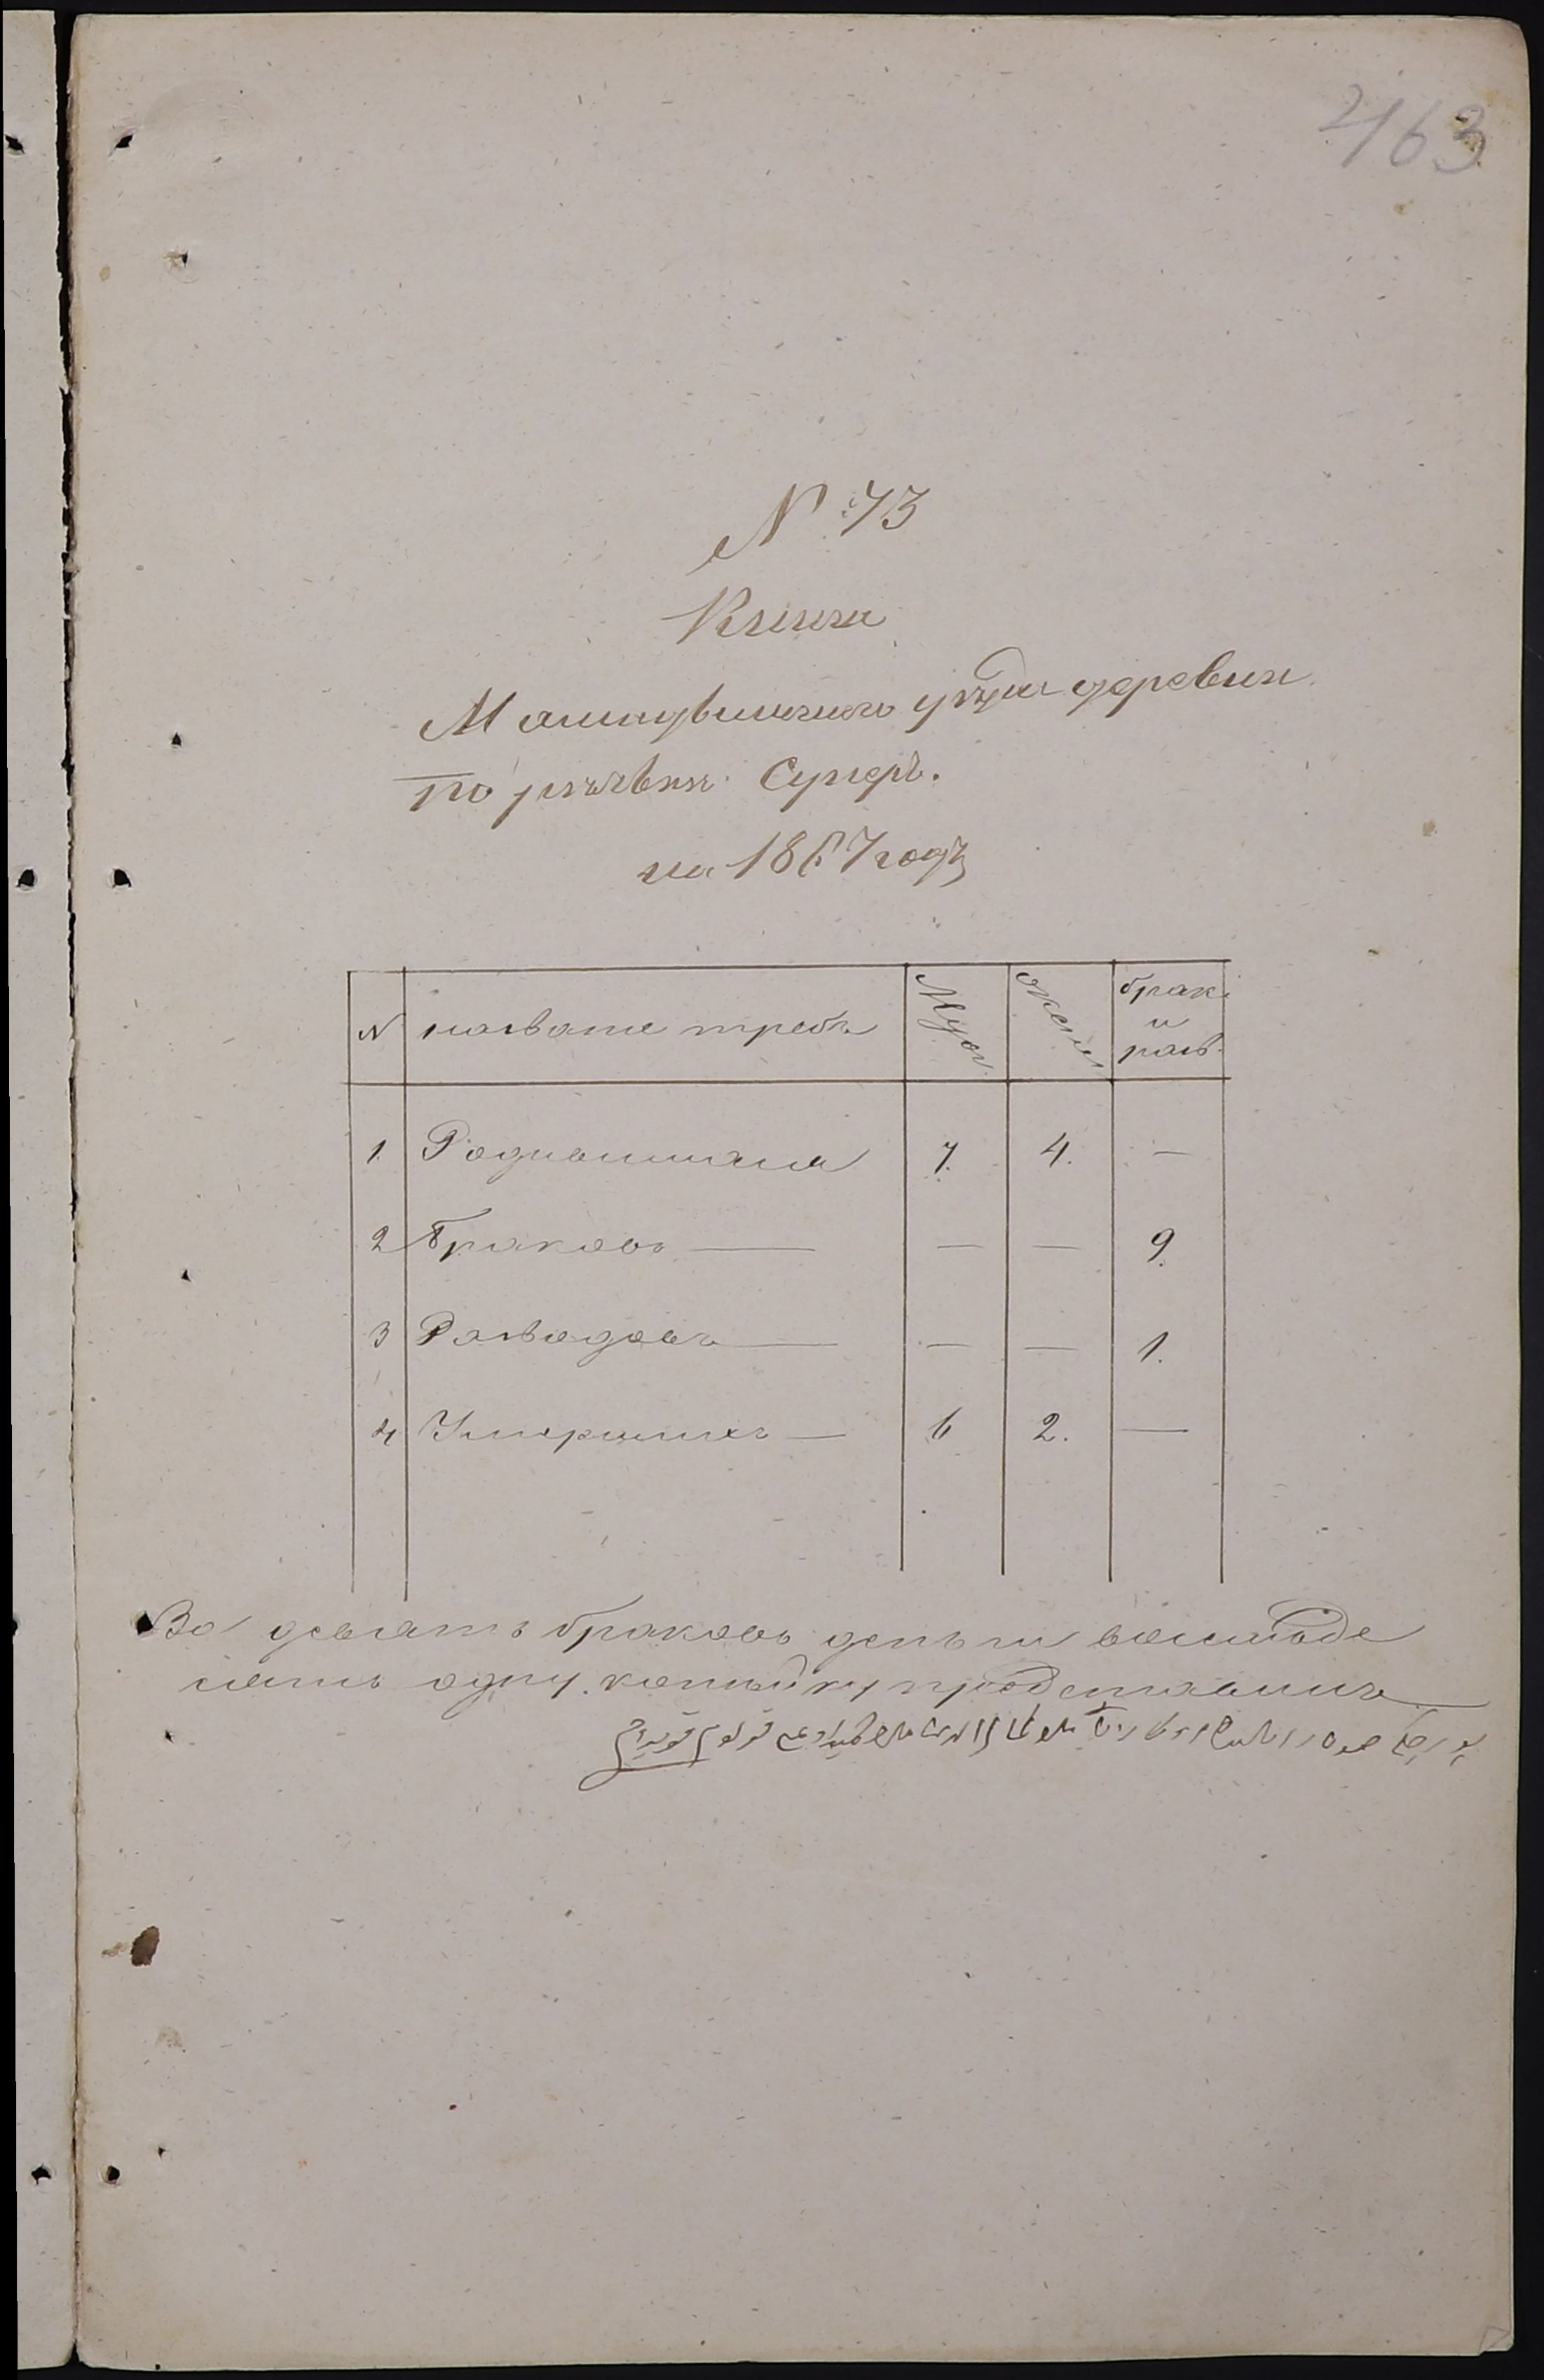 463
N 73
Книга
Мамадышскаго уѣзда деревни
по рѣчькѣ Суперь.
на 1867 годъ
N название требъ Муж. Жени браки и разв.
1. Родившихся 7. 4. —
2 Браковъ — — — 9.
3 Разводовъ — — — 1.
4 Умершихъ — 6 2. —
За девять браковъ деньги восемьде
сятъ одну копѣйку представилъ